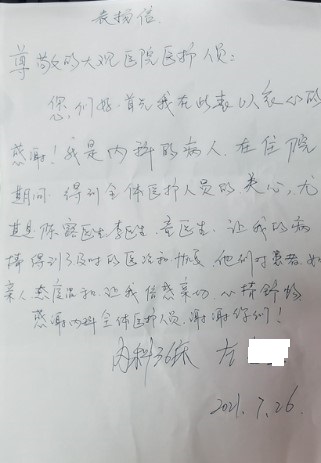 表扬信
尊敬的大观医院医护人员：
您们好，首先我在此表以衷心的
感谢！我是内科的病人，在住院
期间，得到全体医护人员的关心，尤
其是陈 医生李医生、章医生，让我的病
情得到了及时的医治和恢复，他们对患者如
亲人态度温和，让我倍感亲切，心情舒畅
感谢内科全体医护人员，谢谢你们！
内科36床 左
2021.7.26